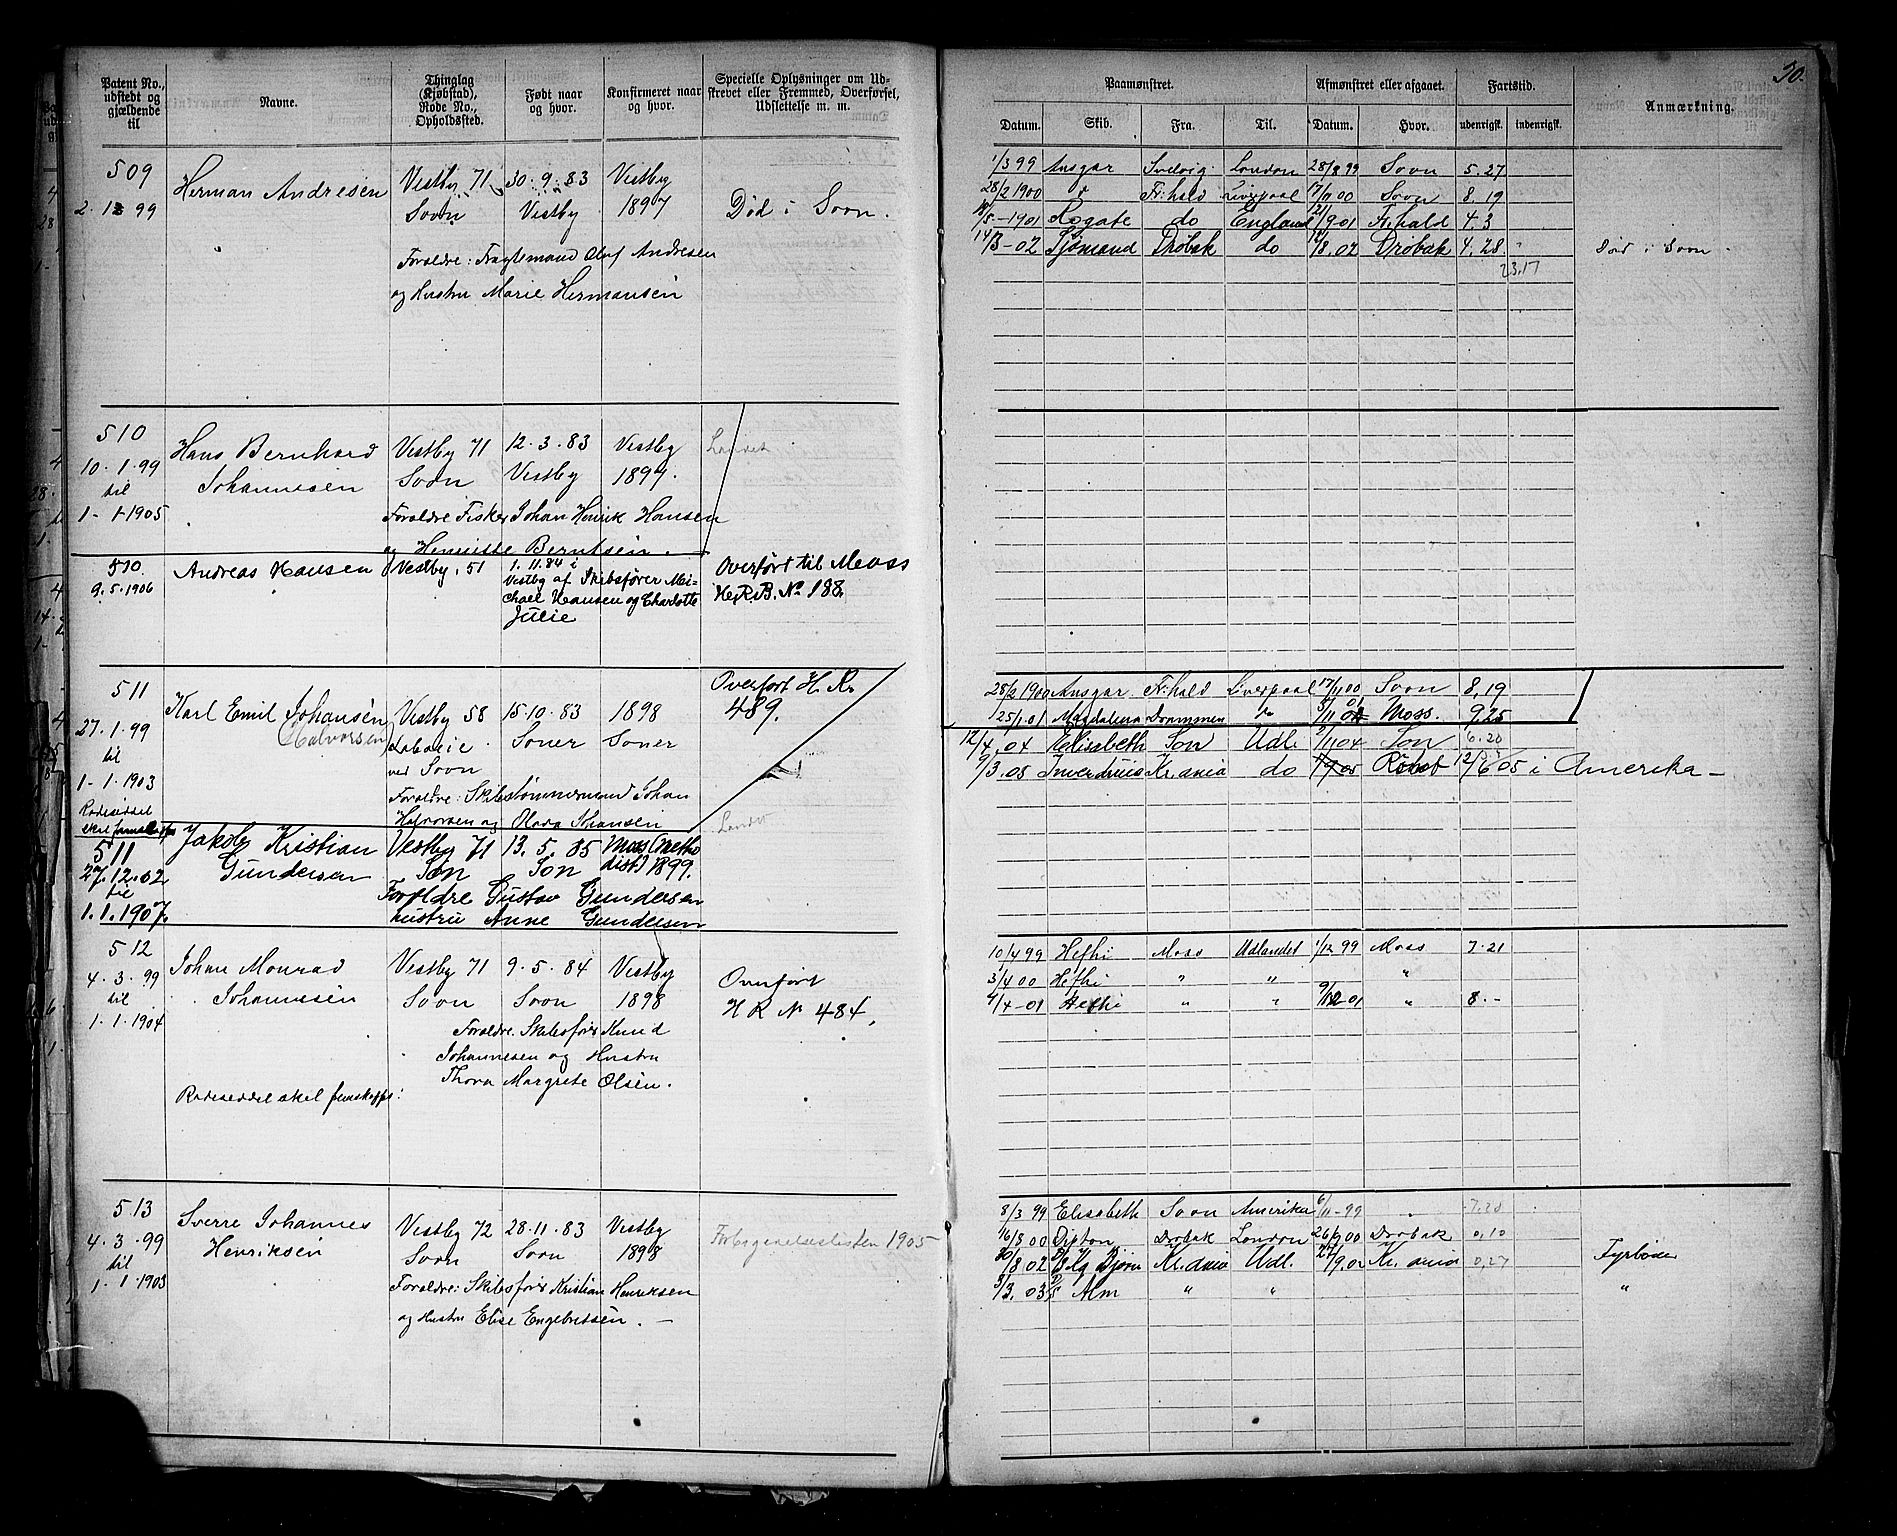 Patent No., udstedt og gjældende til
Navne.
Thinglag (Kjøbstad), Rode No., Opholdssted.
Født naar og hvor.
Konfirmeret naar og hvor.
Specielle Oplysninger om Udskrevet eller Fremmed, Overførsel, Udslettelse m. m.
Paamønstret.
Afmønstret eller afgaaet.
Fartstid.
Anmærkning.
Datum. Skib. Fra. Til. Datum. Hvor. udenrigsk. indenrigsk.
509
Herman Andresen
Vestby 71 30.9.83 Vestby
Sovn Vestby 1897
Død i Sovn.
Forældre: Fragtemand Oluf Andresen
og Hustru Marie Hermansen
1/3 99 Ansgar Svelvig London 28/8 99 Sovn 5.27
28/2 1900 Fr.hald Liverpool 17/11 00 Sovn 8.19
1901 Rogate do England 9 01 Fr.hald 4.3
14/3-02 Sjømand Drøbak do 8.02 Drøbak 4.28
Død i Sovn
23.17
510
10.1.99
til
1-1-1905
Hans Bernhard
Johannesen
Vestby 71 12.3.83 Vestby
Sovn Vestby 1897.
Forældre Fisker Johan Henrik Hansen
og Henriette Berntsen.
510.
9.5.1906
Andreas Hansen
Vestby. 51
1.11.84 i
Vestby af Skibsfører Mi-
chael Hansen og Charlotte
Julie
Overført til Moss
H.R.B. No 188
511
27.1.99
til
1-1.1903
Karl Emil Johansen
(Halvorsen
Vestby 58 15.10.83 1898
Labo
ved Sovn
Soner Soner
Forældre: Skibstømmermand Johan
Halvorsen og Olava Johansen
Overført H. R.
489.
28/2 1900 Ansgar Fr.hald Liverpool 17/11 00 Sovn 8,19
25/1.01 Magdalena Drammen do Moss. 9.25
12/4.04 Elisabeth Son Udl. 2/11 04 Son 6.20
9/3.05 Kr.ania do 12/6 05 i Amerika -
511
27.12.02
til
1.1.1907.
Jakob Kristian
Gundersen
Vestby 71 13.5.85 Moss (metho
Son Son dist) 1899.
Forældre Gustav Gundersen
hustru Anne Gundersen
512
4.3.99
til
1.1.1904
Johan Monrad
Johannesen
Vestby 71 9.5.84 Vestby
Sovn Sovn 1898
Forældre: Skibsfører Knud
Johannesen og Hustru
Thora Margrete Olsen.
Overført
H R N 484,
10/4 99 Hethi Moss Udlandet 1/12 99 Moss 7.21
3/4 00 Hethi " " "
9/4-01 Hethi " " 9/12 01 " 8.-
513
4.3.99
til
1.1.1903
Sverre Johannes
Henriksen
Vestby 72 28.11.83 Vestby
Sovn Sovn 1898
Forældre: Skibsfører Kristian Henriksen
og Hustru Elise Engebretsen. -
1905
8/3 99 Elisabeth Sovn Amerika 6/11-99 7.28
16/8 00 Dipton Drøbak London 26/9 00 Drøbak 0,10
20/8.02 Bjørn Kr.ania Udl. 27/9.02 Kr.ania 0,27 Fyrbøder
3/3.03 Alm " " "